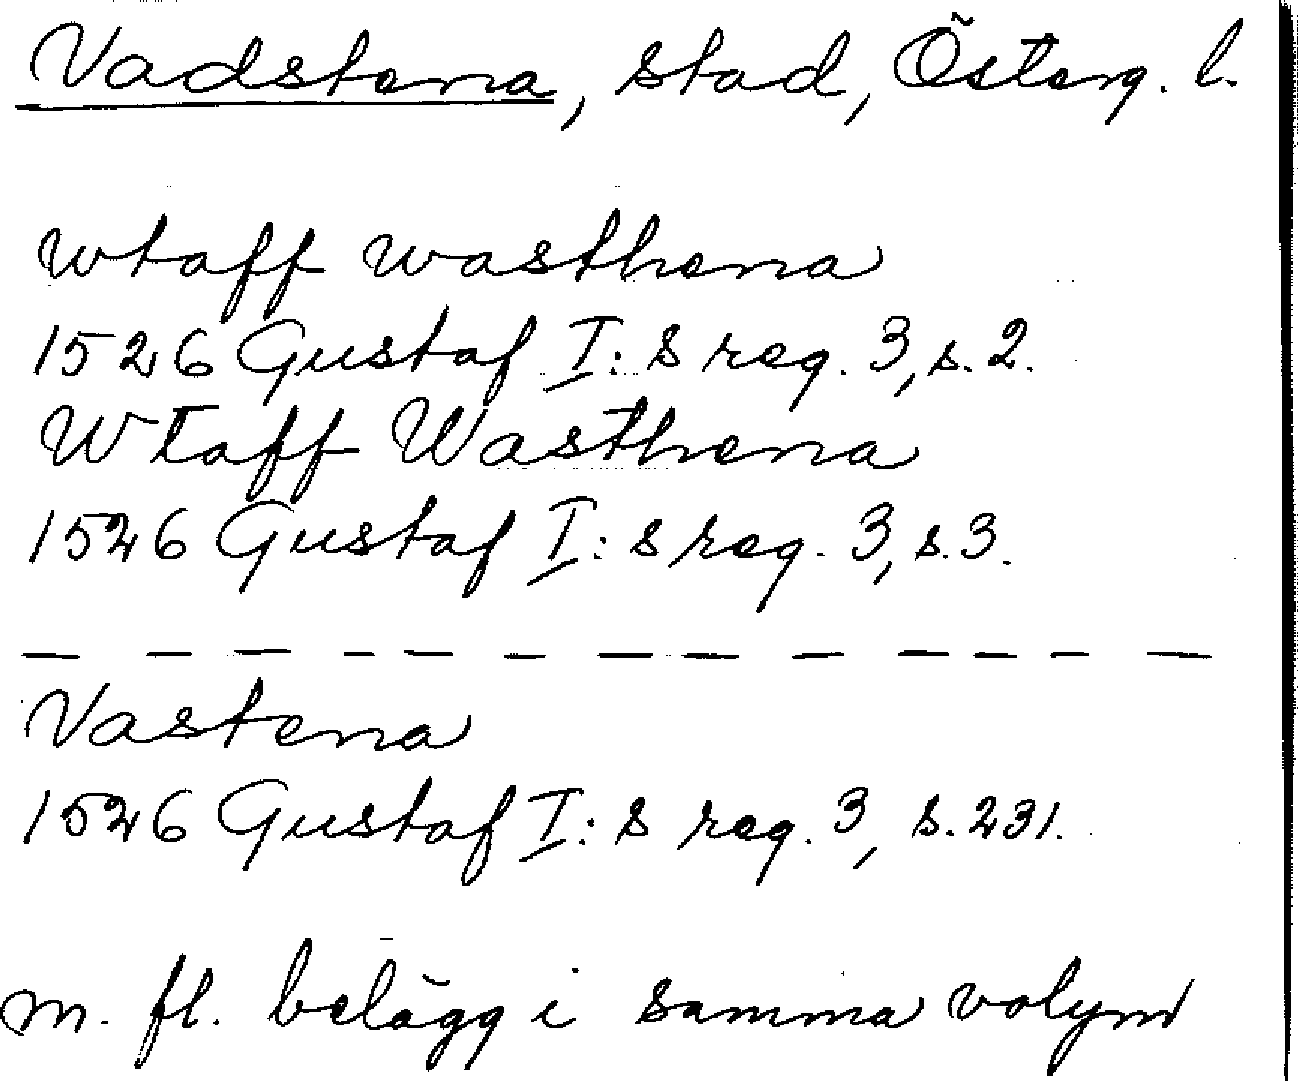 Vadstena, stad, Österg. l.
wtaff wasthena
1526 Gustaf I:s reg. 3, s. 2.
Wtaff Wasthena
1526 Gustaf I:s reg. 3, s. 3.
— — — — — — — — — — — — —
Vastena
1526 Gustaf I:s reg. 3, s. 231.
m. fl. belägg i samma volym